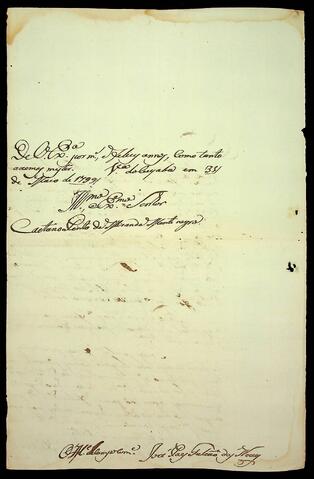 De V. Ex.ª por m.s e felices annos, como tanto
avemos mister. V.ª do Cuyabá em 31
de Marco de 1799,,
Ill.mo e Ex.mo Senhor
Caetano Pinto de Miranda Monte negro.
Joze Paes Falcão das Neves